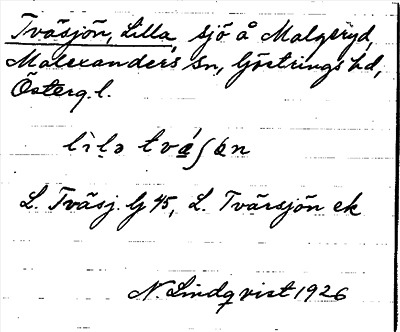 Tväsjön, Lilla, sjö å Malgeryd,
Malexanders sn, Göstrings hd,
Österg. l.
L. Tväsj. G 45, L. Tvärsjön ek
N. Lindqvist 1926